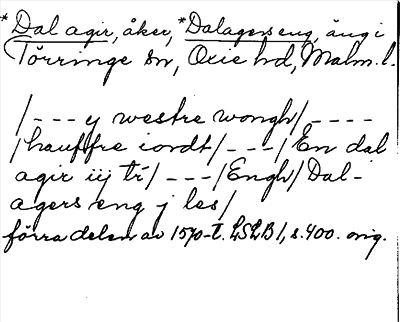 *Dal agir, åker, *Dalagers eng, äng i
Törringe sn, Oxie hd, Malm. l.
/--- y westre wongh/----
/hauffre iordt/---/En dal
agir iij tr/---/Engh/Dal-
agers eng j les/
förra delen av 1570-t. LSLB 1, s. 400. orig.